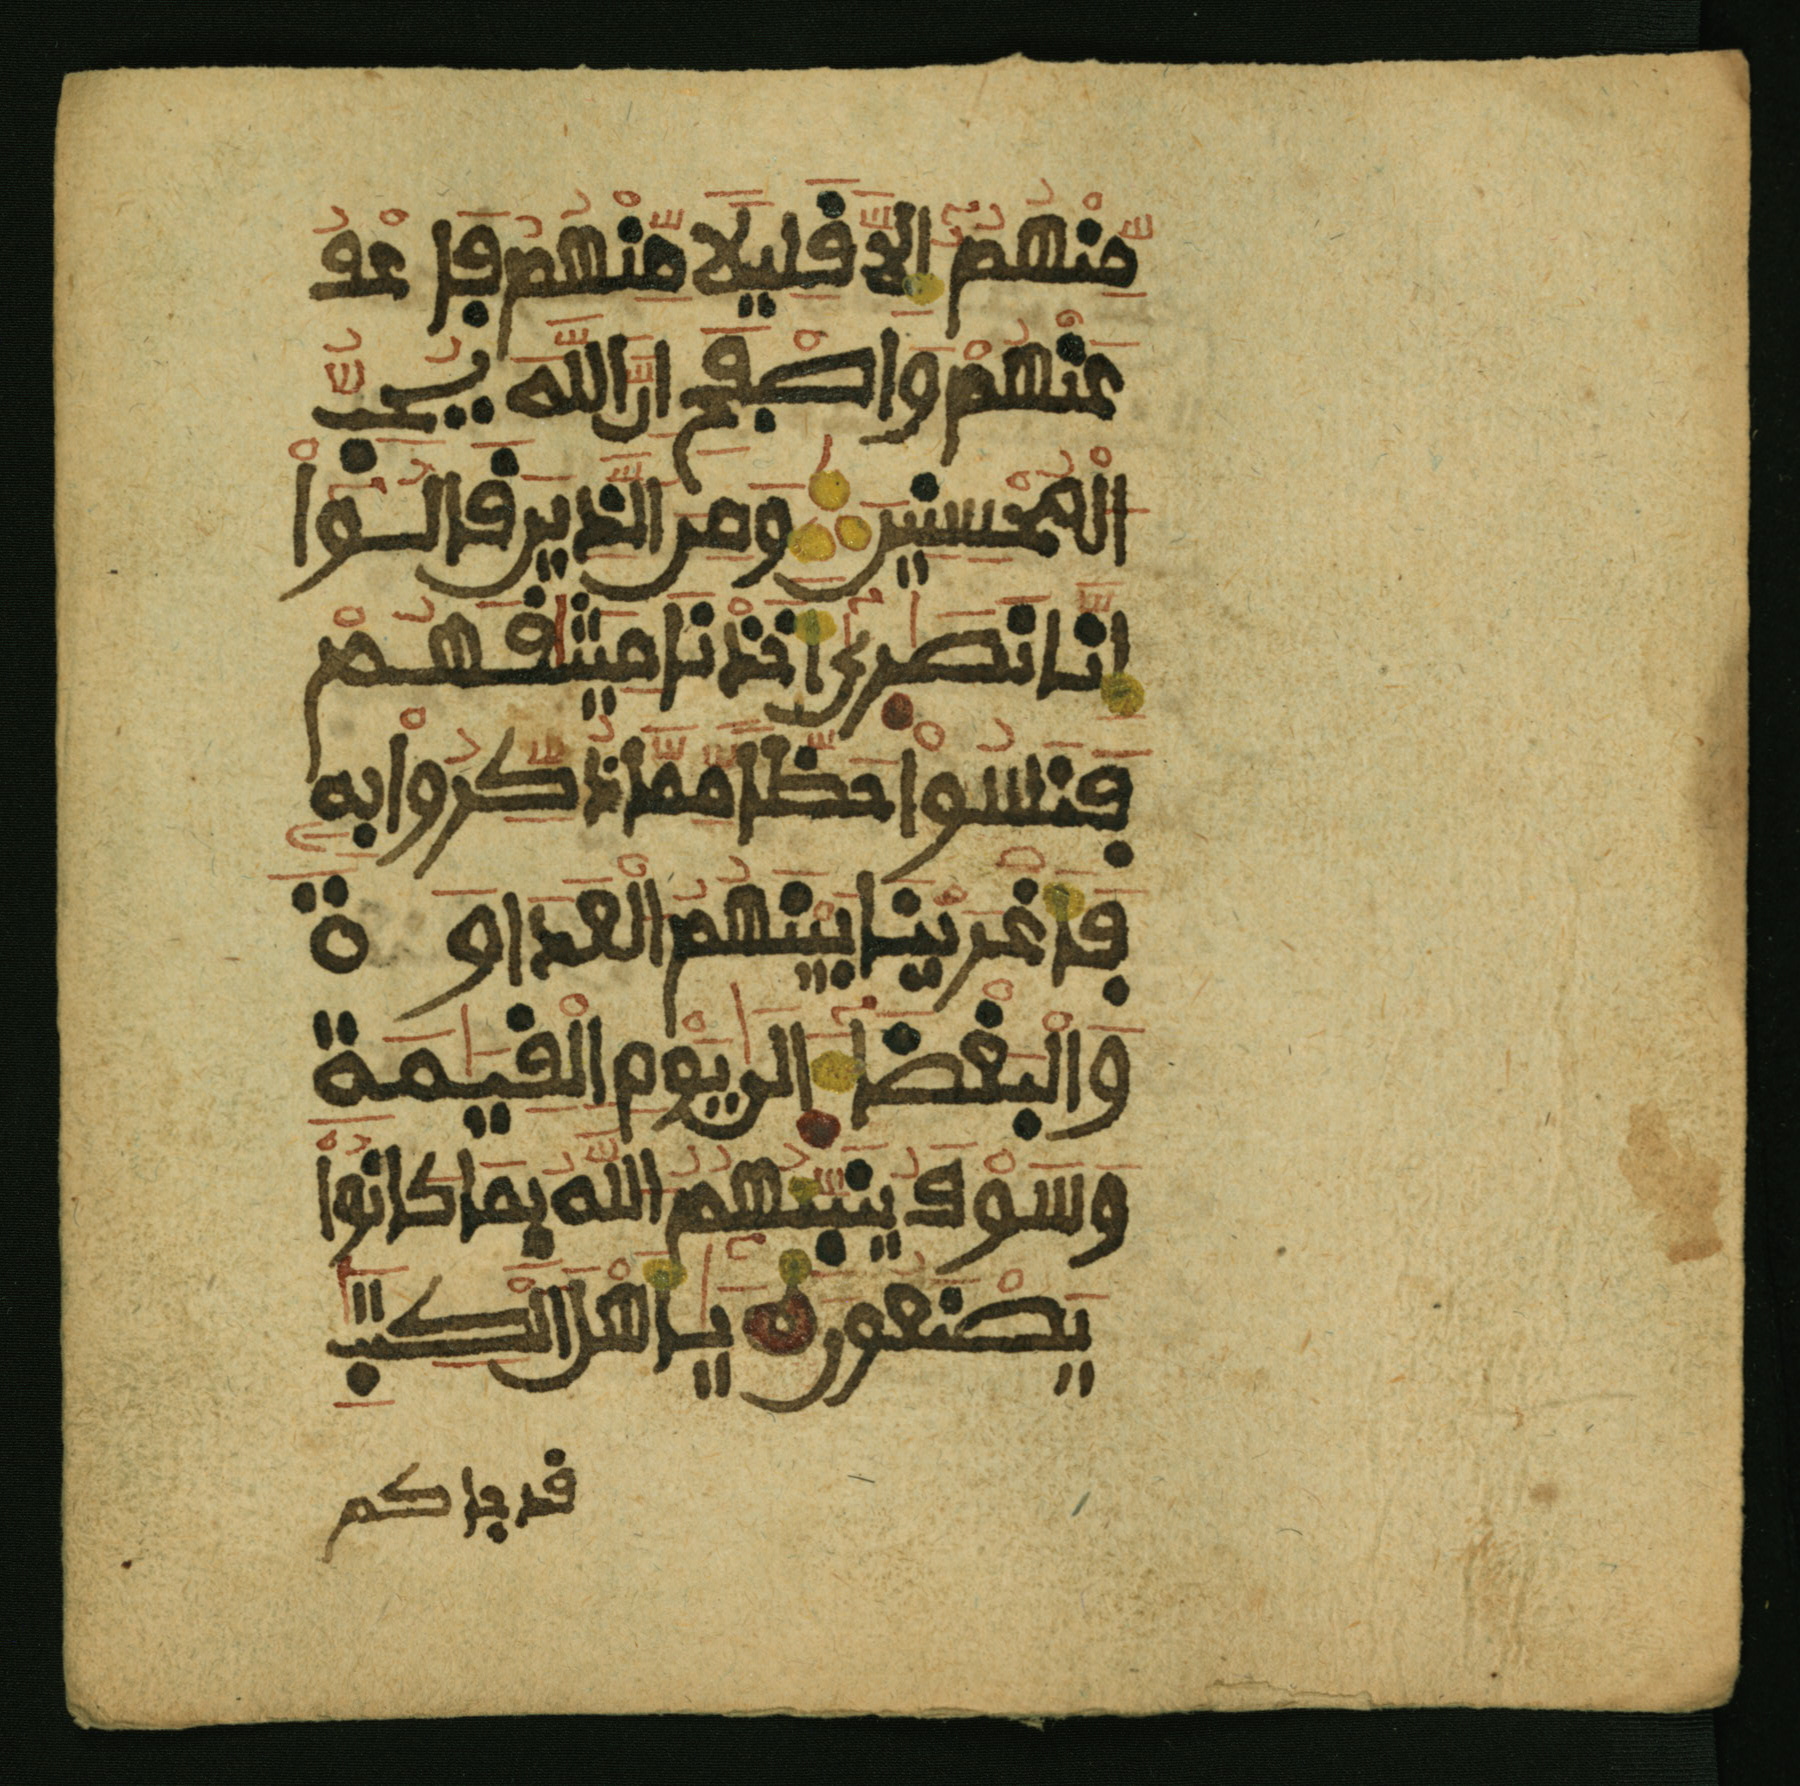 مِّنْهُمُۥٓ إِلَّا فَلِيلًا مِّنْهُمْ فَاعْفُ
عَنْهُمْ وَاصْفَحْ إِنَّ اللَّهَ يُحِبُّ
الْمُحْسِنِينَ وَمِنَ الَّذِينَ قَالُوٓاْ
إِنَّا نَصَٰرِىٰٓ أَخَذْنَا مِيثَٰقَهُمْ
فَنَسُواْ حَظًّا مِّمَّا ذُكِّرُواْ بِهِۦ
فَأَغْرَيْنَا بَيْنَهُمُ الْعَدَاوَةَ
وَالْبَغْضَآءَ إِلَىٰ يَوْمِ الْقِيَٰمَةِ
وَسَوْفَ يُنَبِّئُهُمُ اللَّهُ بِمَا كَانُواْ
يَصْنَعُونَ يَٰٓأَهْلَ الْكِتَٰبِ
قد جاكم